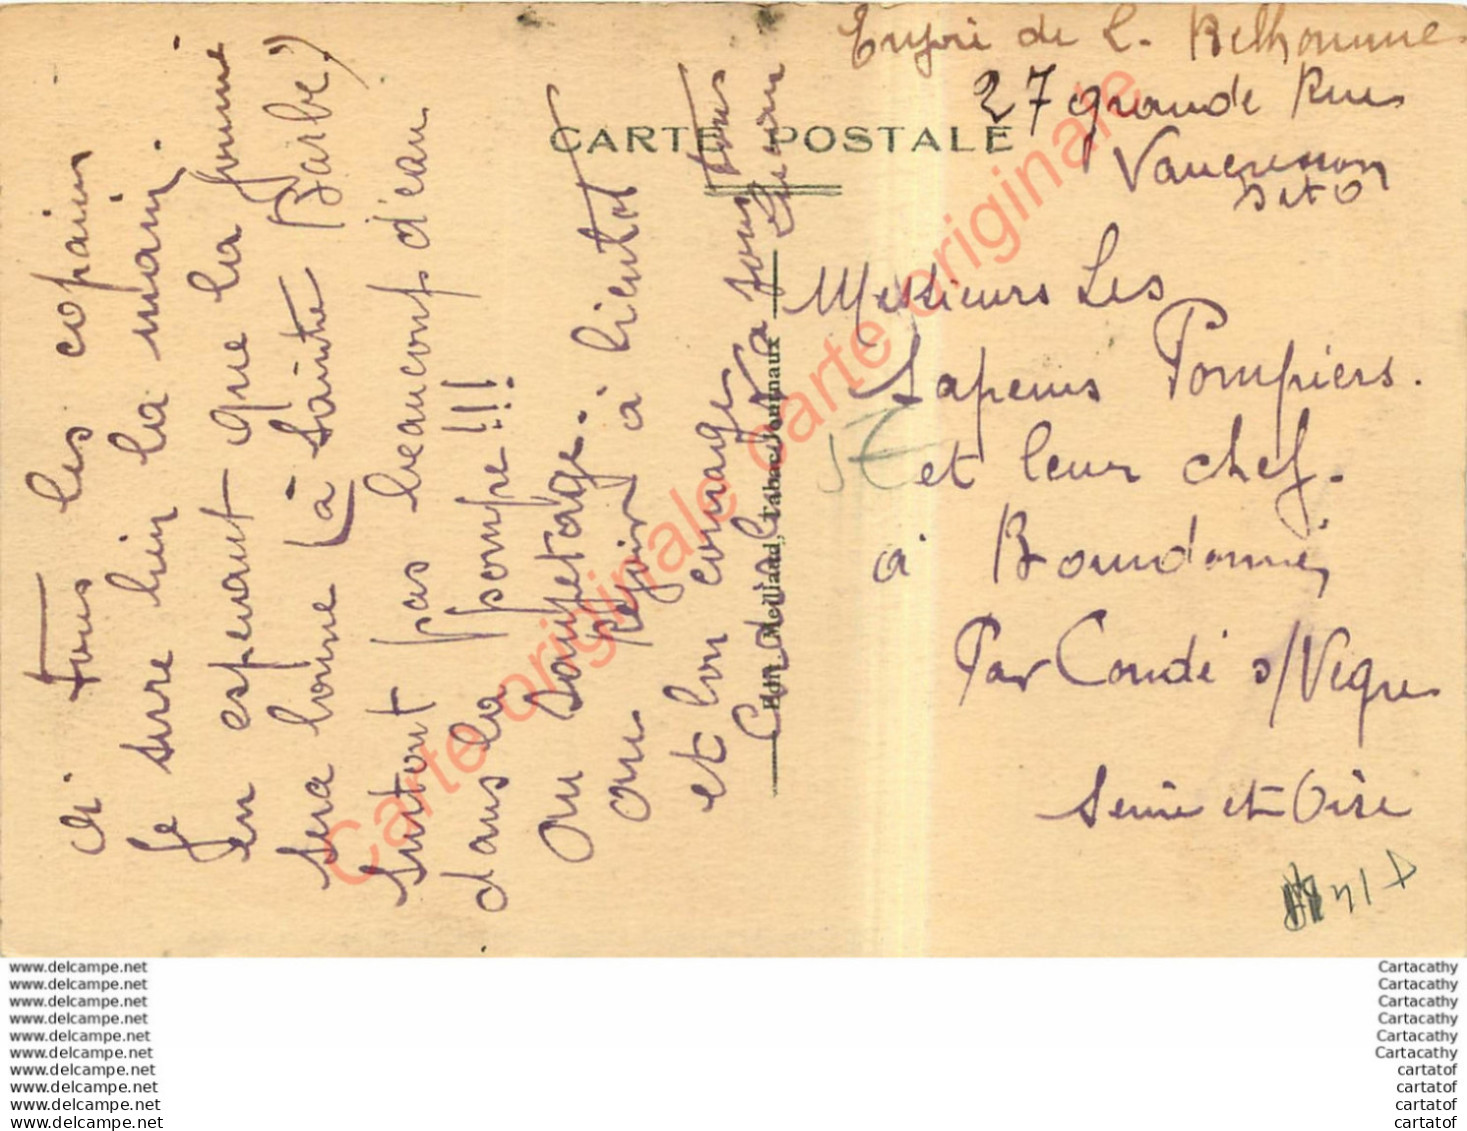 Envoi de L. Belhomme
27 grande Rue
Vaucresson
S et O
CARTE POSTALE
Messieurs Les
Sapeurs Pompiers.
et leur chef.
à Bourdonné
Par Condé s/Vègre
Seine et Oise
à tous les copains
Je serre bien la main.
en espérant que la journée
sera bonne (à Sainte Barbe)
surtout pas beaucoup d'eau
dans la pompe!!!
Au Sauvetage.
Au Revoir à bientôt
et bon courage à vous tous
Cordial
Edit. Meilland, Tabac-Journaux
Carte originale carte originale carte originale
www.delcampe.net
www.delcampe.net
www.delcampe.net
www.delcampe.net
www.delcampe.net
www.delcampe.net
www.delcampe.net
www.delcampe.net
www.delcampe.net
www.delcampe.net
Cartacathy
Cartacathy
Cartacathy
Cartacathy
Cartacathy
Cartacathy
cartatof
cartatof
cartatof
cartatof